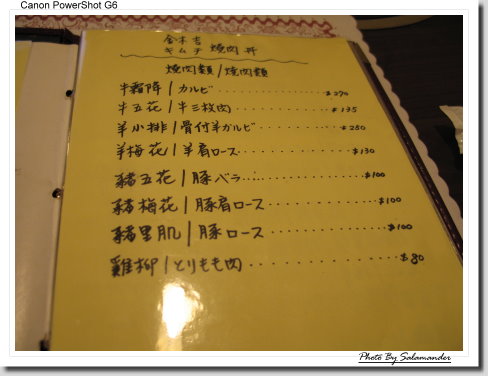 Canon PowerShot G6
金本吉
キムチ 燒肉丼
燒肉類/燒肉類
牛霜降/カルビ $270
牛五花/牛三枚肉 $135
羊小排/骨付羊カルビ $280
羊梅花/羊肩ロース $130
豬五花/豚バラ $100
豬梅花/豚肩ロース $100
豬里肌/豚ロース $100
雞柳/とりもも肉 $80
Photo By Salamander